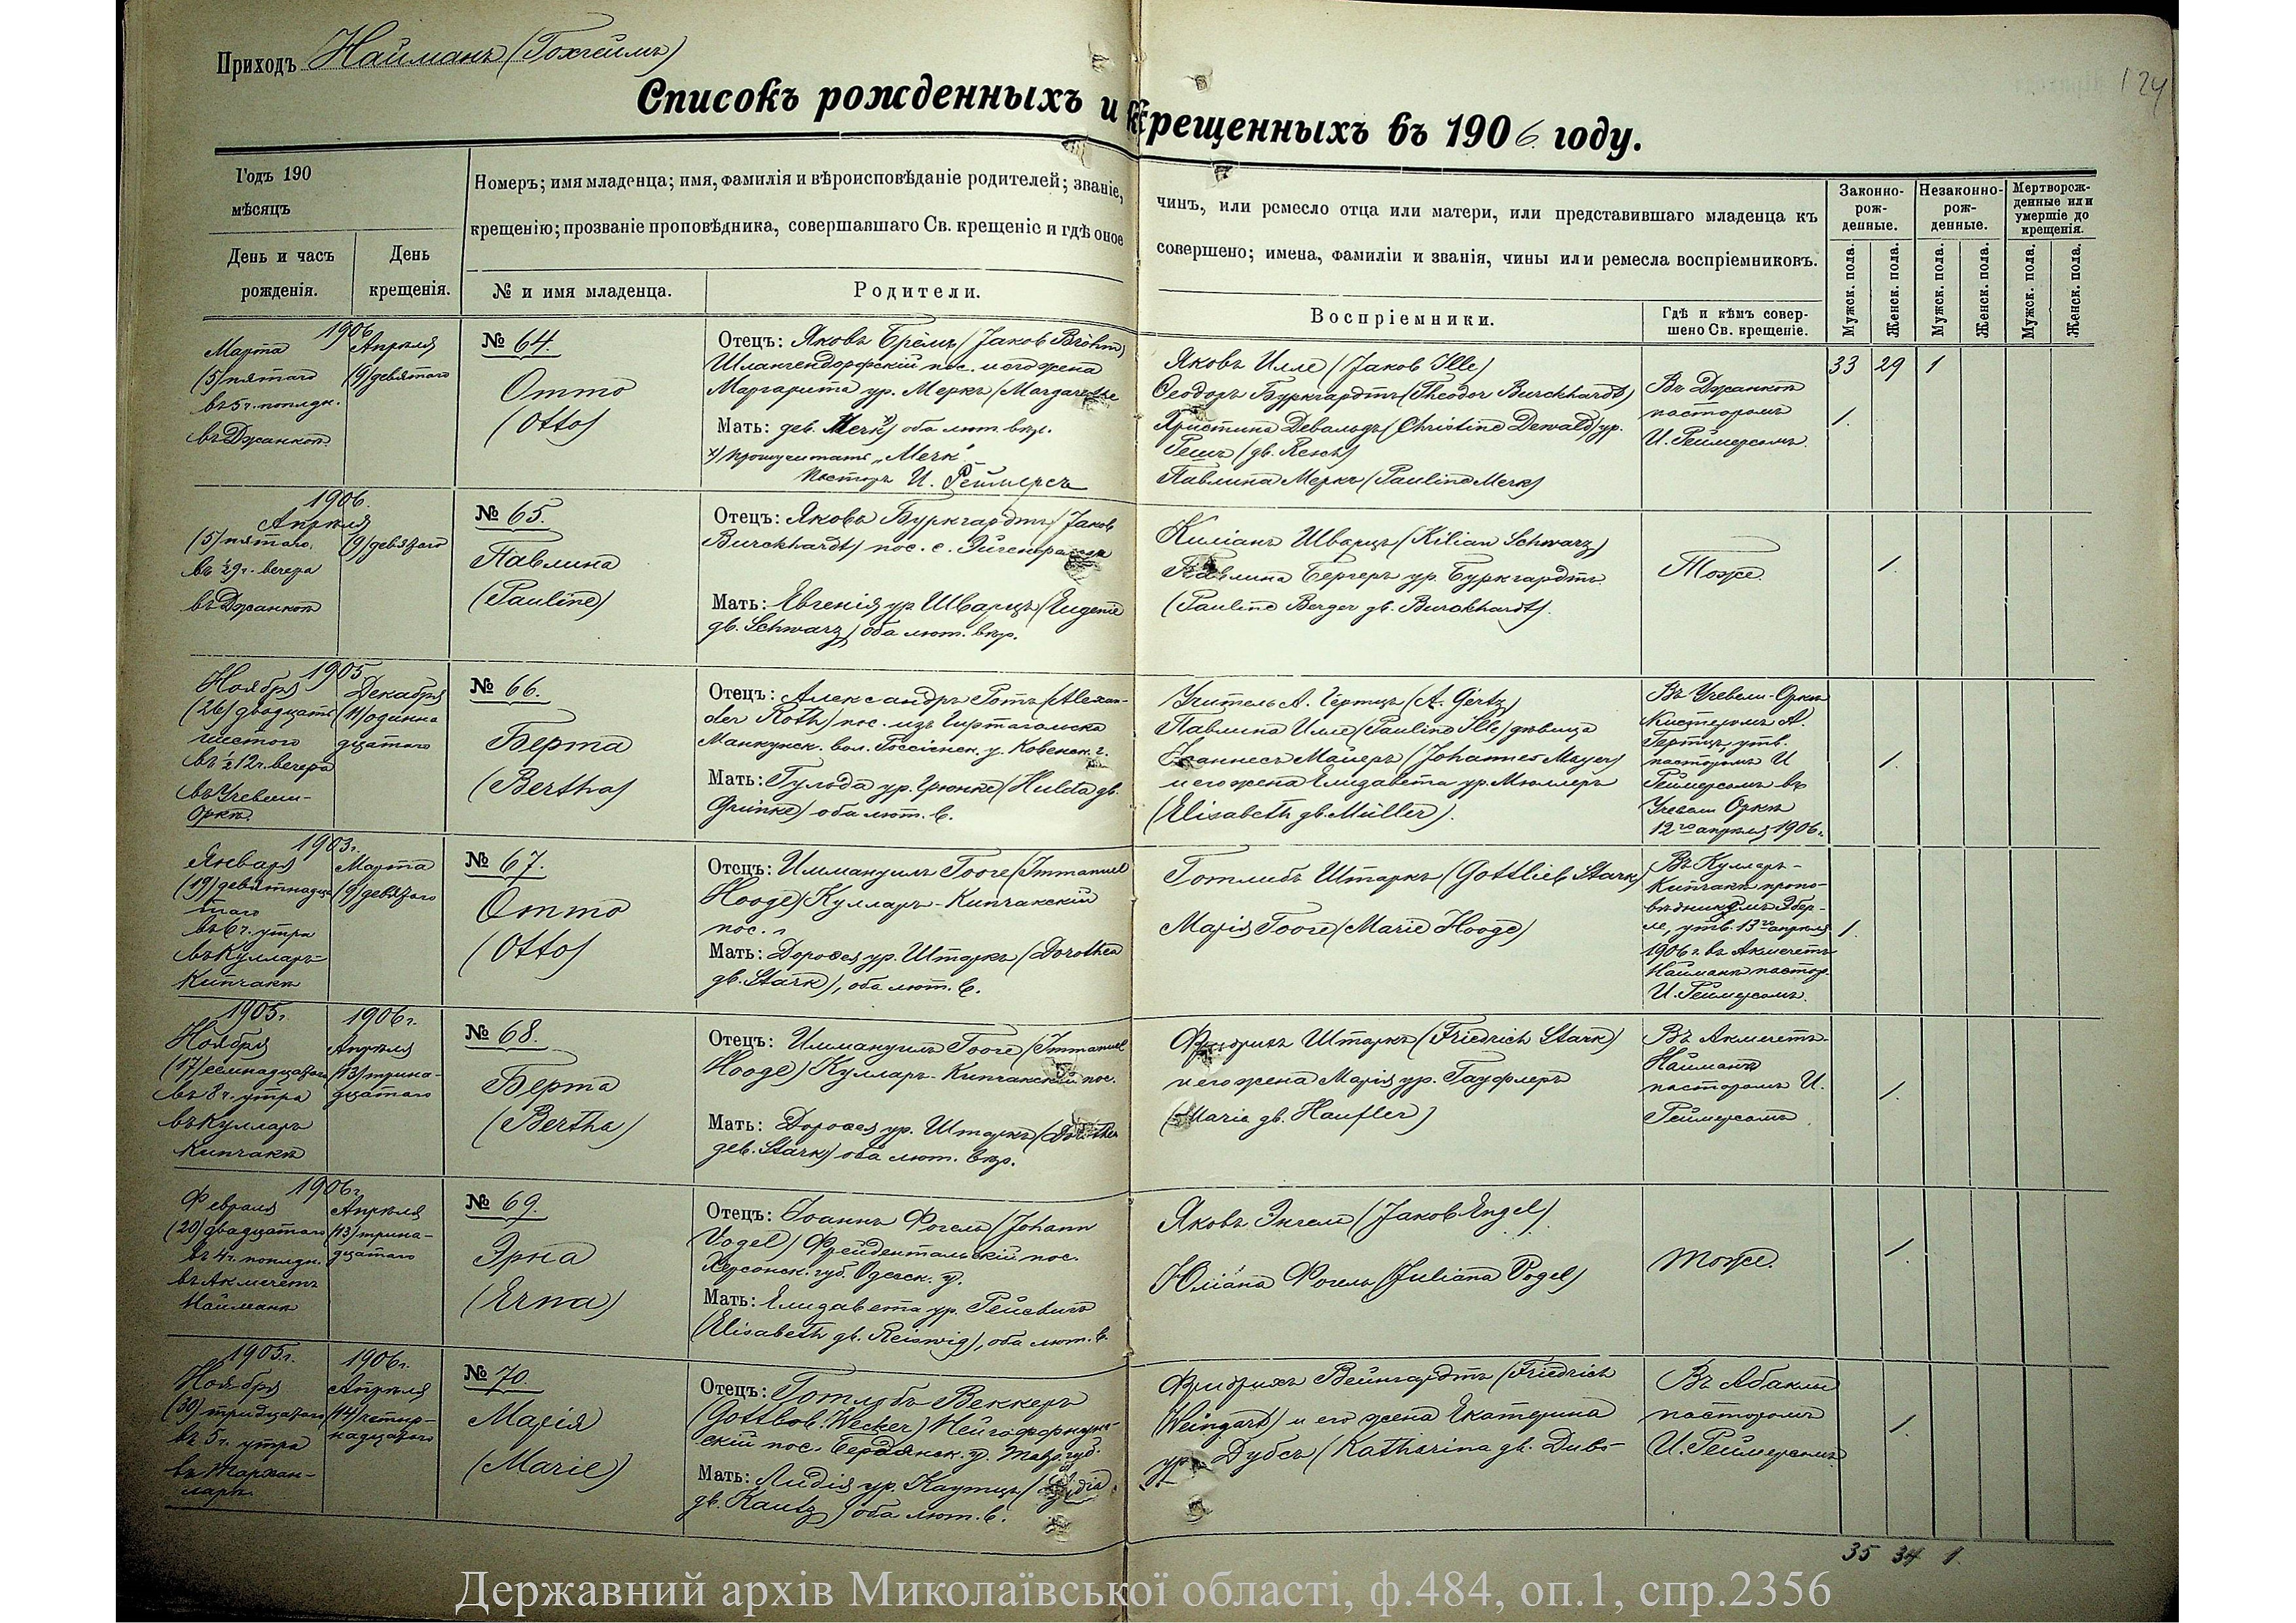 Приходъ Найманъ (Гохгеймъ)
124
Списокъ рожденныхъ и крещенныхъ въ 1906 году.
Годъ 190
мѣсяцъ
День и часъ рожденія.
День крещенія.
Номеръ; имя младенца; имя, фамилія и вѣроисповѣданіе родителей; званіе, чинъ, или ремесло отца или матери, или представившаго младенца къ
крещенію; прозваніе проповѣдника, совершавшаго Св. крещеніе и гдѣ оное совершено; имена, фамиліи и званія, чины или ремесла воспріемниковъ.
№ и имя младенца.
Родители.
Воспріемники.
Гдѣ и кѣмъ совершено Св. крещеніе.
Законно-рожденные.
Незаконно-рожденные.
Мертворожденные или умершіе до крещенія.
Мужск. пола.
Женск. пола.
Мужск. пола.
Женск. пола.
Мужск. пола.
Женск. пола.
1906
Марта
(5) пятаго
въ 5 ч. пополдн.
въ Джанкоѣ
Апрѣля
(9) девятаго
№ 64.
Отто
(Otto)
Отецъ: Яковъ Брёмъ (Jakob Bröhm)
Шлангендорфскій пос. и его жена
Маргарита ур. Меркъ (Margarethe
Мать: геб. Merk) оба лют. вѣр.
x) прошу читать „Merk"
Пасторъ И. Реймерсъ
Яковъ Илле (Jakob Ille)
Ѳеодоръ Буркгардтъ (Theodor Burckhardt)
Христина Девальдъ (Christine Dewald) ур.
Решъ (gb. Resch)
Павлина Меркъ (Pauline Merk)
Въ Джанкоѣ
пасторомъ
И. Реймерсомъ
33 29 1
1.
1906.
Апрѣля
(5) пятаго,
въ ½9 ч. вечера
въ Джанкоѣ
(9) девятаго
№ 65.
Павлина
(Pauline)
Отецъ: Яковъ Буркгардтъ (Jakob
Burckhardt) пос. с. Эйгенфельда
Мать: Евгенія ур. Шварцъ (Eugenie
gb. Schwarz) оба лют. вѣр.
Киліанъ Шварцъ (Kilian Schwarz)
Павлина Бергеръ ур. Буркгардтъ
(Pauline Berger gb. Burckhardt).
Тоже.
1.
1905
Ноября
(26) двадцать
шестого
въ ½12 ч. вечера
въ Учевли-
Оркѣ.
Декабря
(11) одинна
дцатаго
№ 66.
Берта
(Bertha)
Отецъ: Александръ Ротъ (Alexan-
der Roth) пос. изъ
вол. Россіенск. у. Ковенск. г.
Мать: Гульда ур. Грюнке (Hulda gb.
Grünke) оба лют. в.
Учитель А. Гёртцъ (A. Görtz)
Павлина Илле (Pauline Ille) дѣвица
Іоаннесъ Майеръ (Johannes Mayer)
и его жена Елизавета ур. Мюллеръ
(Elisabeth gb. Müller).
Въ Учевли-Оркѣ
Кистеромъ А.
Гертцъ, утв.
пасторомъ И
Реймерсомъ въ
Учевли Оркѣ
12го апрѣля 1906 г.
1.
1903 г.
Января
(19) девятнадца
таго
въ 6 ч. утра
въ Кулларъ-
Кипчакѣ
Марта
(9) девятаго
№ 67.
Отто
(Otto)
Отецъ: Иммануилъ Гооге (Immanuel
Hooge) Кулларъ-Кипчакскій
пос.
Мать: Доротея ур. Штаркъ (Dorothea
gb. Stark), оба лют. в.
Готлибъ Штаркъ (Gottlieb Stark)
Марія Гооге (Marie Hooge)
Въ Кулларъ-
Кипчакѣ пропо-
вѣдникомъ Эбер-
ле, утв. 13го апрѣля
1906 г. въ Акмечетъ
Найманѣ пастор.
И. Реймерсомъ.
1.
1905 г.
Ноября
(17) семнадцатаго
въ 8 ч. утра
въ Кулларъ
Кипчакѣ
1906 г.
Апрѣля
(13) трина-
дцатаго
№ 68.
Берта
(Bertha)
Отецъ: Иммануилъ Гооге (Immanuel
Hooge) Кулларъ-Кипчакскій пос.
Мать: Доротея ур. Штаркъ (Dorothea
геб. Stark) оба лют. вѣр.
Фридрихъ Штаркъ (Friedrich Stark)
и его жена Марія ур. Гауфлеръ
(Marie gb. Haufler)
Въ Акмечетъ-
Найманѣ
пасторомъ И.
Реймерсомъ
1.
1906 г.
Февраля
(20) двадцатаго
въ 4 ч. пополдн.
въ Акмечетъ
Найманѣ
Апрѣля
(13) трина-
дцатаго
№ 69.
Эрна
(Erna)
Отецъ: Іоаннъ Фогель (Johann
Vogel) Фрейдентальскій пос.
Херсонск. губ. Одесск. у.
Мать: Елизавета ур. Рейсвигъ
(Elisabeth gb. Reiswig), оба лют. в.
Яковъ Энгель (Jakob Engel)
Юліана Фогель (Juliana Vogel)
Тоже.
1.
1905 г.
Ноября
(30) тридцатаго
въ 5 ч. утра
въ Тархан-
ларѣ
1906 г.
Апрѣля
(14) четыр-
надцатаго
№ 70.
Марія
(Marie)
Отецъ: Готлобъ Веккеръ
(Gottlob Wecker) Нейгофнунг-
скій пос. Бердянск. у. Тавр. губ.
Мать: Лидія ур. Каутцъ (Lydia
gb. Kautz) оба лют. в.
Фридрихъ Вейнгардтъ (Friedrich
Weingart) и его жена Екатерина
ур. Дубсъ (Katharina gb. Dubs-
Въ Абаклы
пасторомъ
И. Реймерсомъ
1.
35 34 1
Державний архів Миколаївської області, ф.484, оп.1, спр.2356